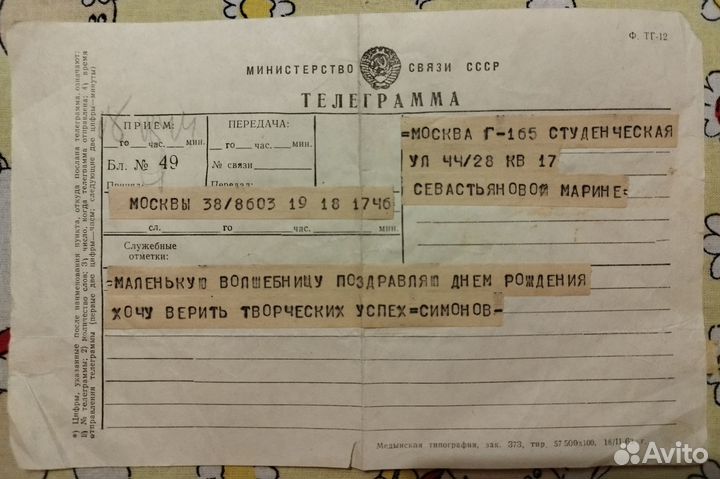 Ф. ТГ-12
МИНИСТЕРСТВО СВЯЗИ СССР
ТЕЛЕГРАММА
ПРИЕМ:
го час. мин.
Бл. № 49
ПЕРЕДАЧА:
го час. мин.
№ связи
=МОСКВА Г-165 СТУДЕНЧЕСКАЯ
УЛ 44/28 КВ 17
СЕВАСТЬЯНОВОЙ МАРИНЕ=
МОСКВЫ 38/8603 19 18 1746
сл. го час. мин.
Служебные
отметки:
=МАЛЕНЬКУЮ ВОЛШЕБНИЦУ ПОЗДРАВЛЯЮ ДНЕМ РОЖДЕНИЯ
ХОЧУ ВЕРИТЬ ТВОРЧЕСКИХ УСПЕХ=СИМОНОВ-
*) Цифры, указанные после наименования пункта, откуда послана телеграмма, означают:
1) № телеграммы; 2) количество слов; 3) число, когда телеграмма отправлена; 4) время
отправления телеграммы (первые две цифры—часы, следующие две цифры—минуты)
Медынская типография, зак. 373, тир. 57 500х100. 18/II-6 г.
Avito